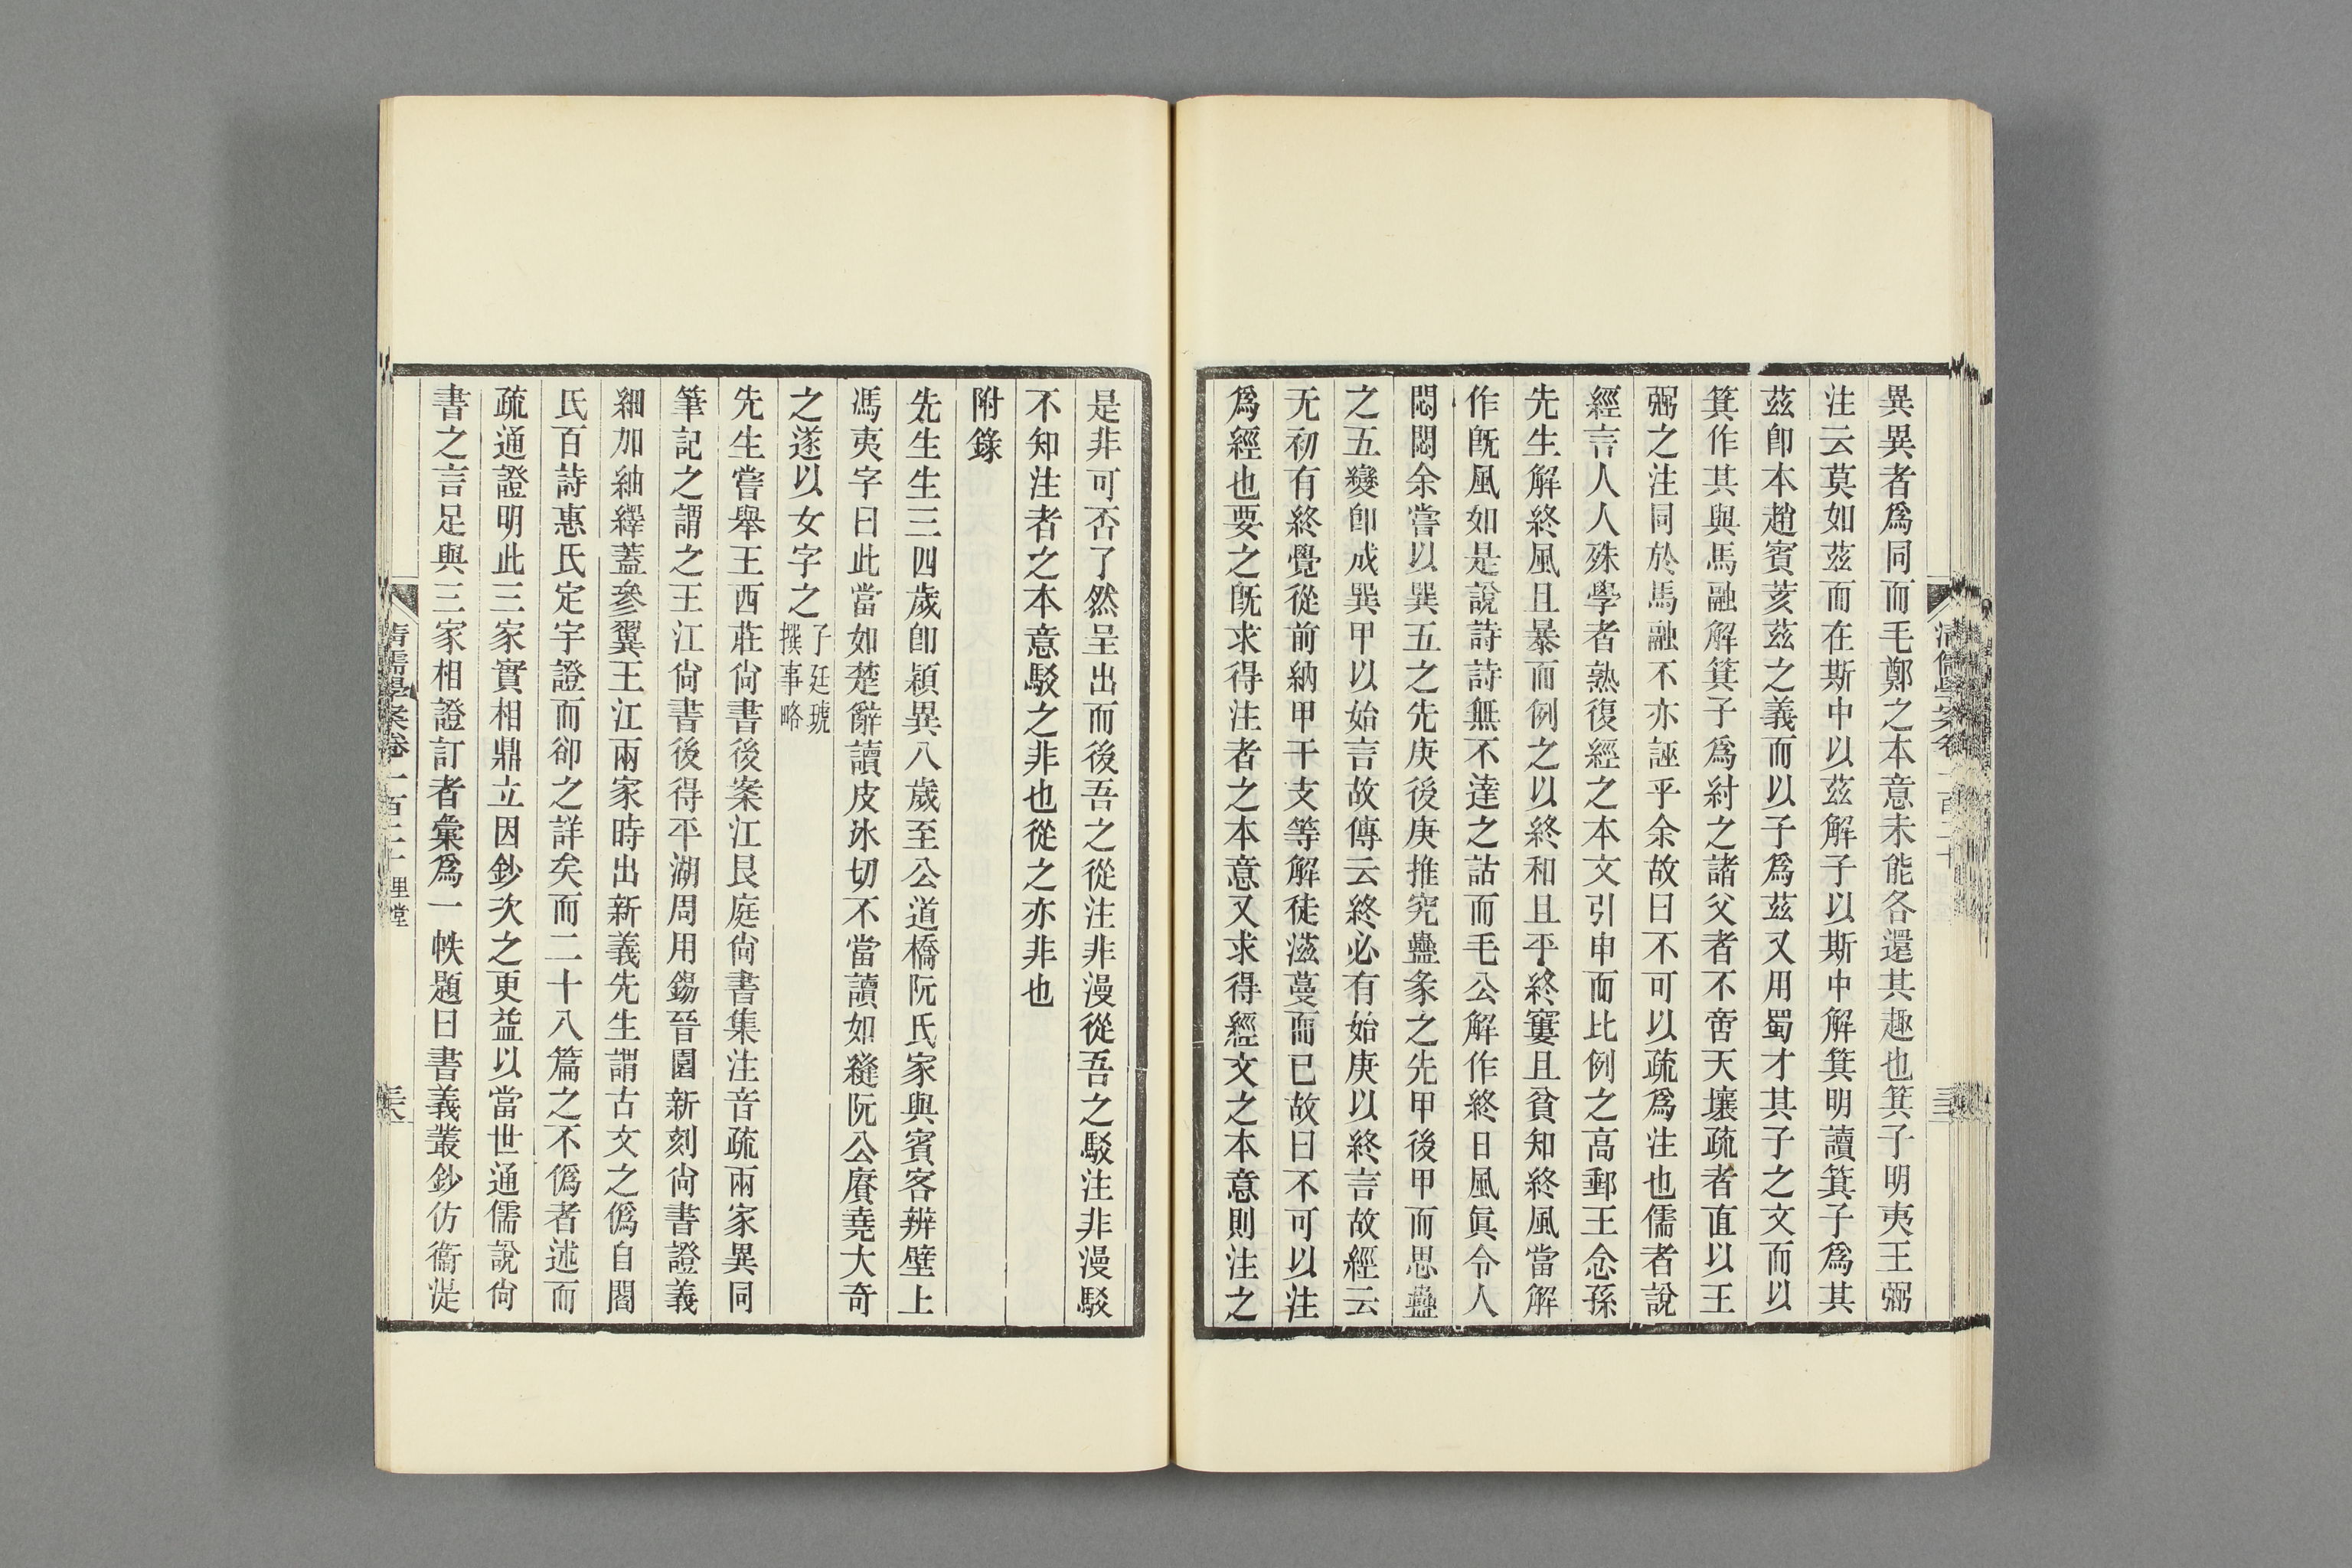 異異者爲同而毛鄭之本意未能各還其趣也箕子明夷王弼
注云莫如茲而在斯中以茲解子以斯中解箕明讀箕子爲其
茲卽本趙賓荄茲之義而以子爲茲又用蜀才其子之文而以
箕作其與馬融解箕子爲紂之諸父者不啻天壤疏者直以王
弼之注同於馬融不亦誣乎余故曰不可以疏爲注也儒者說
經言人人殊學者熟復經之本文引申而比例之高郵王念孫
先生解終風且暴而例之以終和且平終窶且貧知終風當解
作旣風如是說詩詩無不達之詁而毛公解作終日風眞令人
悶悶余嘗以巽五之先庚後庚推究蠱彖之先甲後甲而思蠱
之五變卽成巽甲以始言故傳云終必有始庚以終言故經云
无初有終覺從前納甲干支等解徒滋蔓而已故曰不可以注
爲經也要之旣求得注者之本意又求得經文之本意則注之
是非可否了然呈出而後吾之從注非漫從吾之駁注非漫駁
不知注者之本意駁之非也從之亦非也
附錄
先生生三四歲卽穎異八歲至公道橋阮氏家與賓客辨壁上
馮夷字曰此當如楚辭讀皮冰切不當讀如縫阮公賡堯大奇
之遂以女字之子廷琥撰事略
先生嘗舉王西莊尙書後案江艮庭尙書集注音疏兩家異同
筆記之謂之王江尙書後得平湖周用錫晉園新刻尙書證義
細加紬繹蓋參翼王江兩家時出新義先生謂古文之僞自閻
氏百詩惠氏定宇證而卻之詳矣而二十八篇之不僞者述而
疏通證明此三家實相鼎立因鈔次之更益以當世通儒說尙
書之言足與三家相證訂者彙爲一帙題曰書義叢鈔仿衞湜
清儒學案卷一百二十 里堂